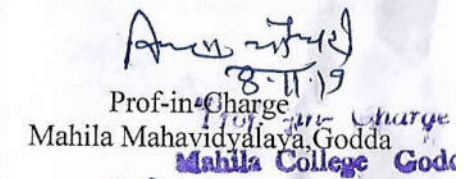 8.11.19
Prof-in-Charge
Prof-in-Charge
Mahila Mahavidyalaya,Godda
Mahila College Godd